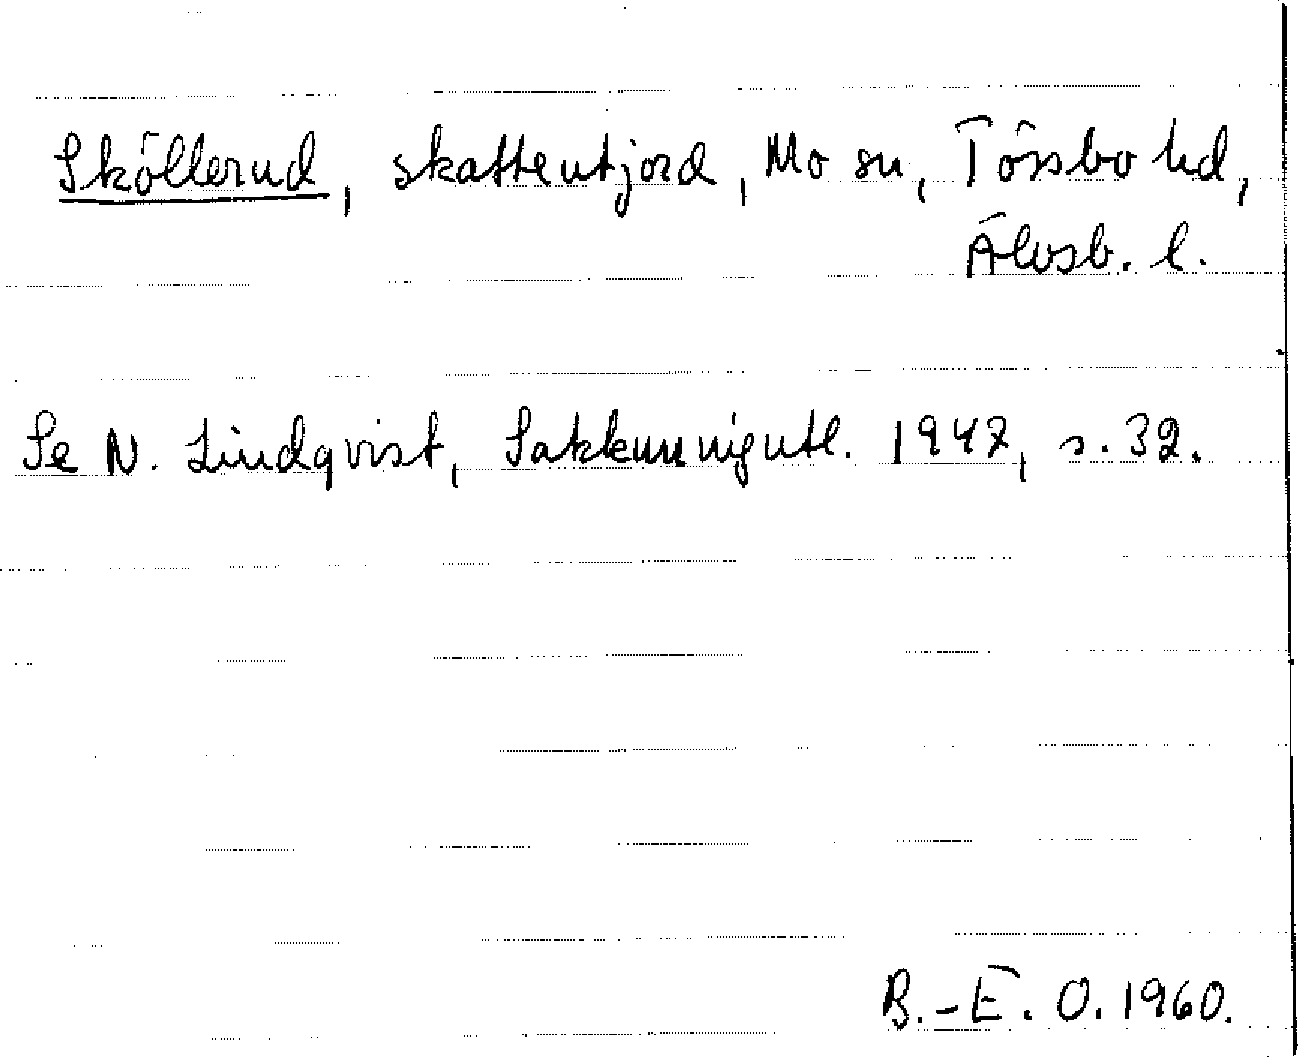 Sköllerud, skatteutjord, Mo sn, Tössbo hd,
Älvsb. l.
Se N. Lindqvist, Sakkunnigutl. 1942, s. 32.
B.-E. O. 1960.